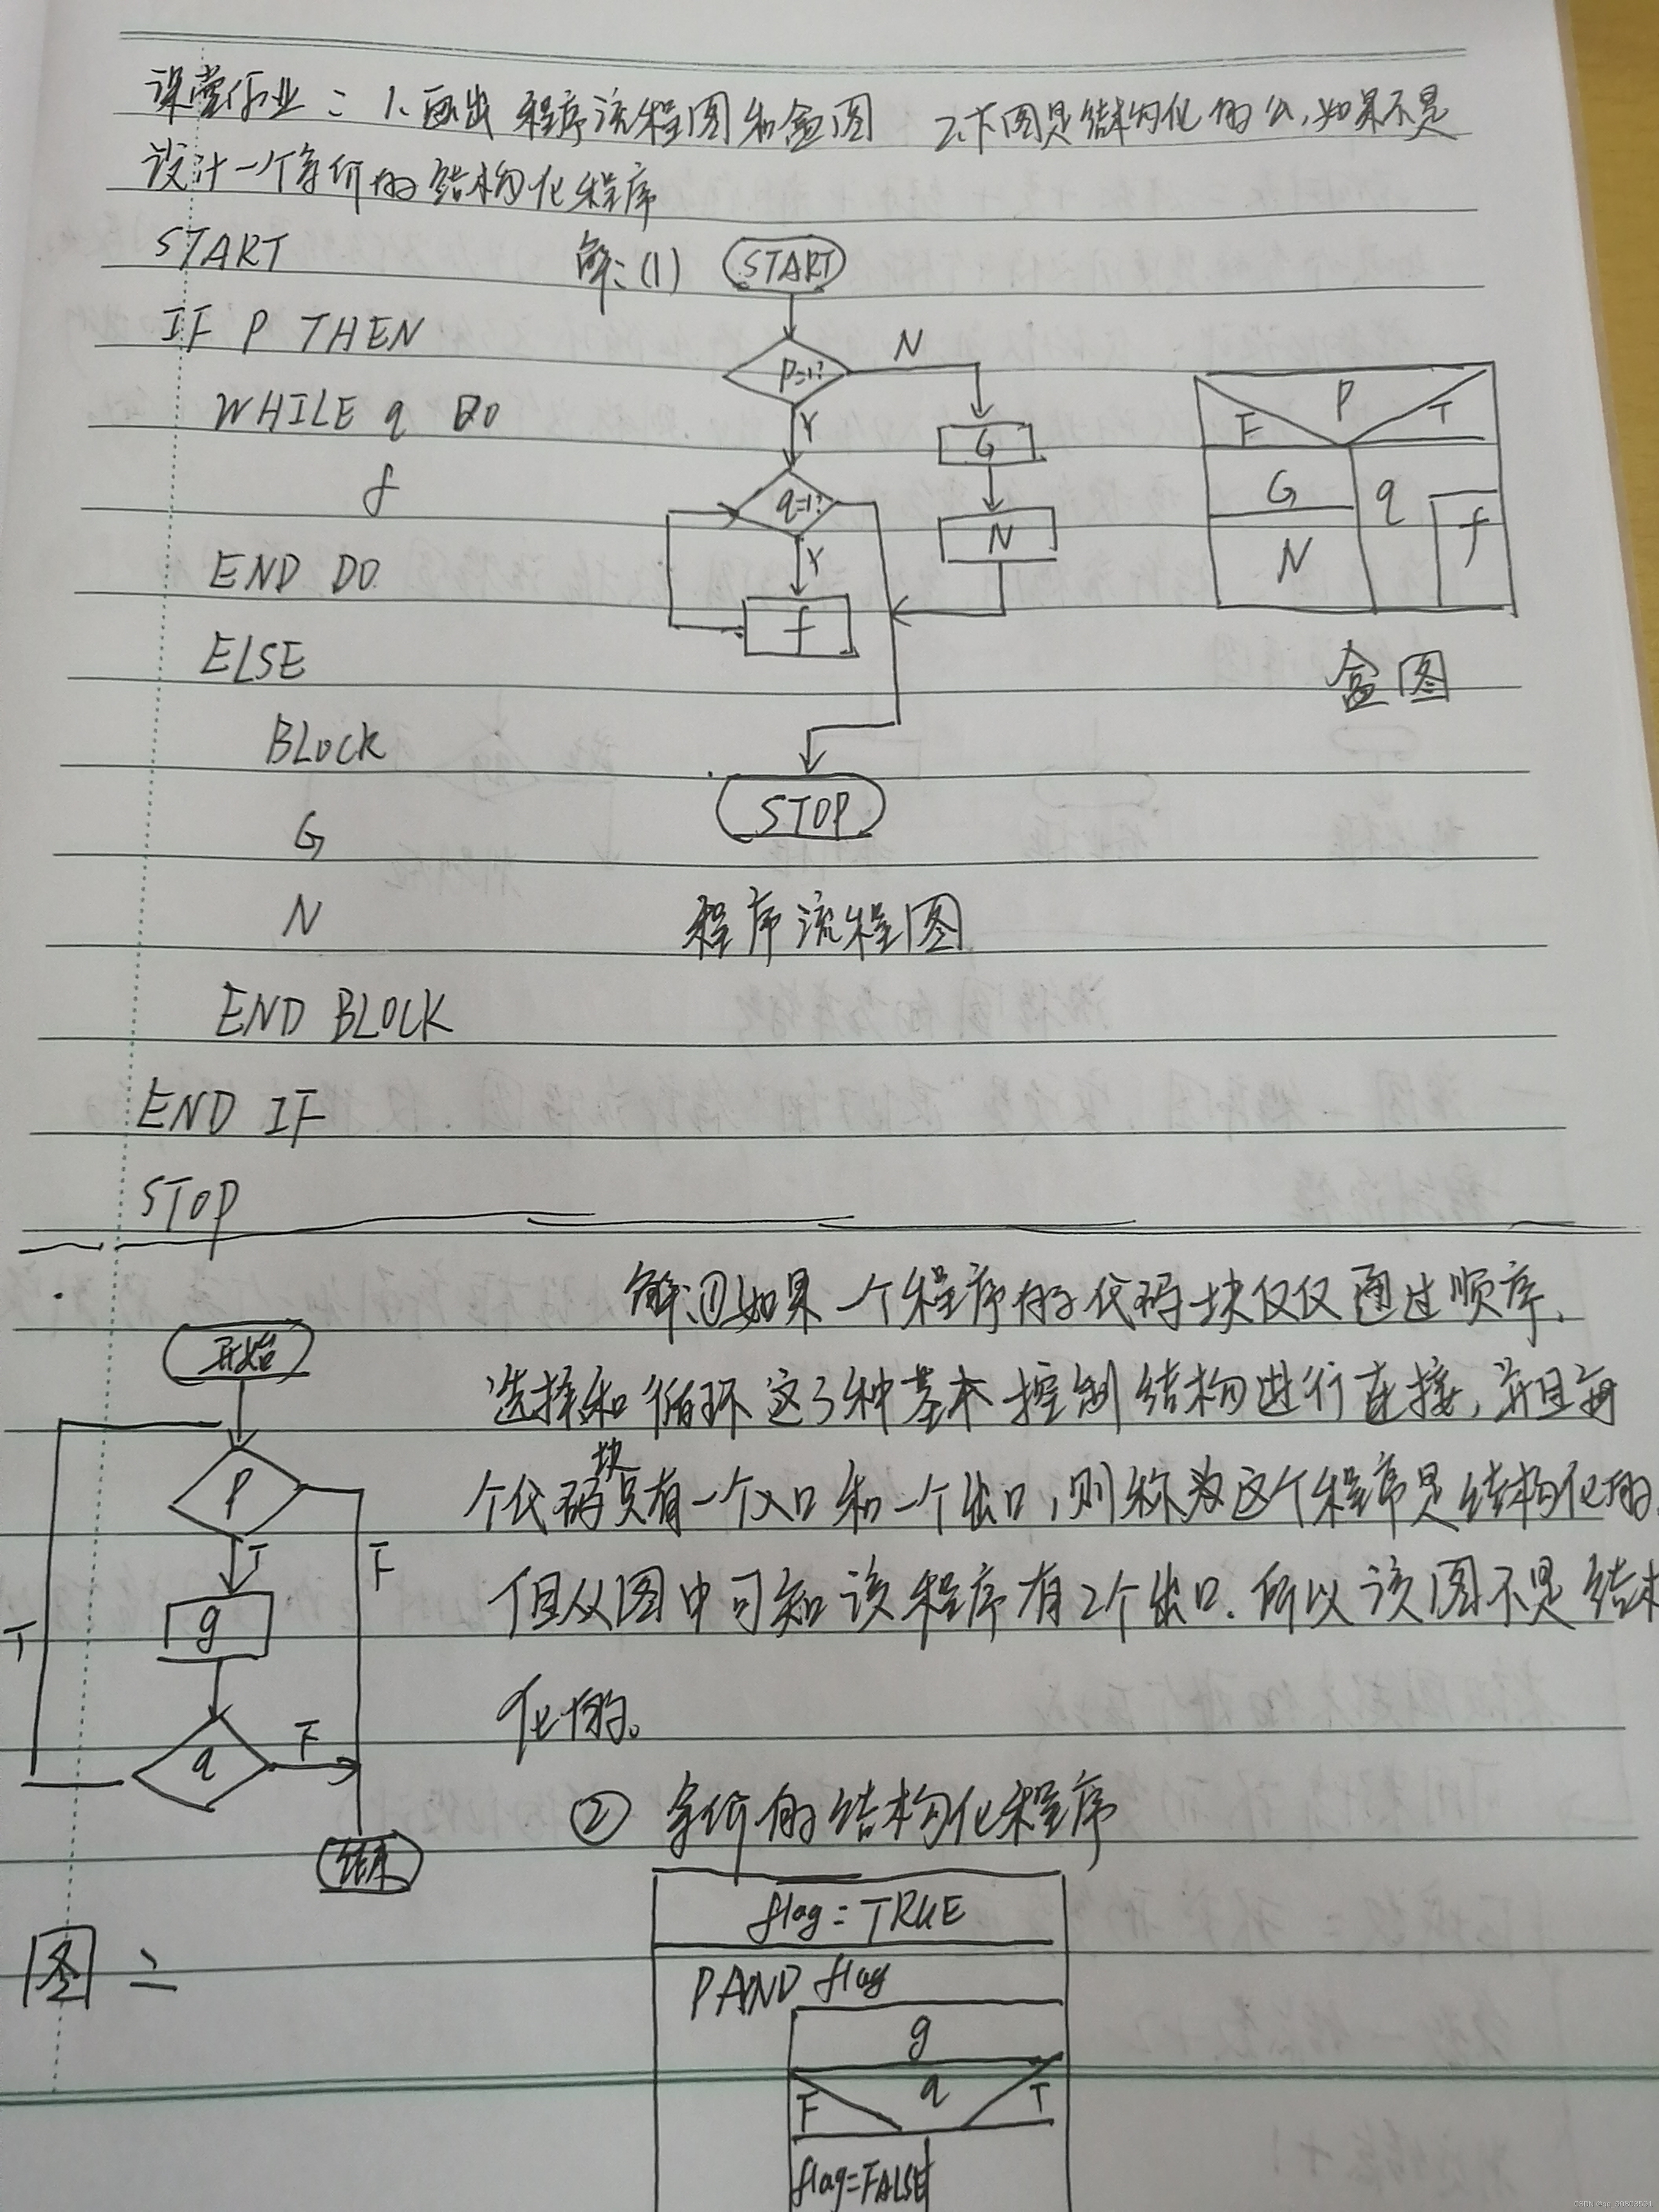 课堂作业：1.画出程序流程图和盒图 2.下图是结构化的么,如果不是
设计一个等价的结构化程序
START
IF P THEN
WHILE q DO
f
END DO
ELSE
BLOCK
G
N
END BLOCK
END IF
STOP
解:(1)
START
P=1?
N
Y
G
q=1?
N
Y
f
STOP
程序流程图
P
F
T
G
q
f
N
盒图
解:①如果一个程序的代码块仅仅通过顺序、
选择和循环这3种基本控制结构进行连接,并且每
个代码块只有一个入口和一个出口,则称为这个程序是结构化的.
但从图中可知该程序有2个出口.所以该图不是结构
化的。
开始
P
T
F
g
T
q
F
结束
图二
② 等价的结构化程序
flag=TRUE
PAND flag
g
q
F
T
flag=FALSE
CSDN @qq_50803591